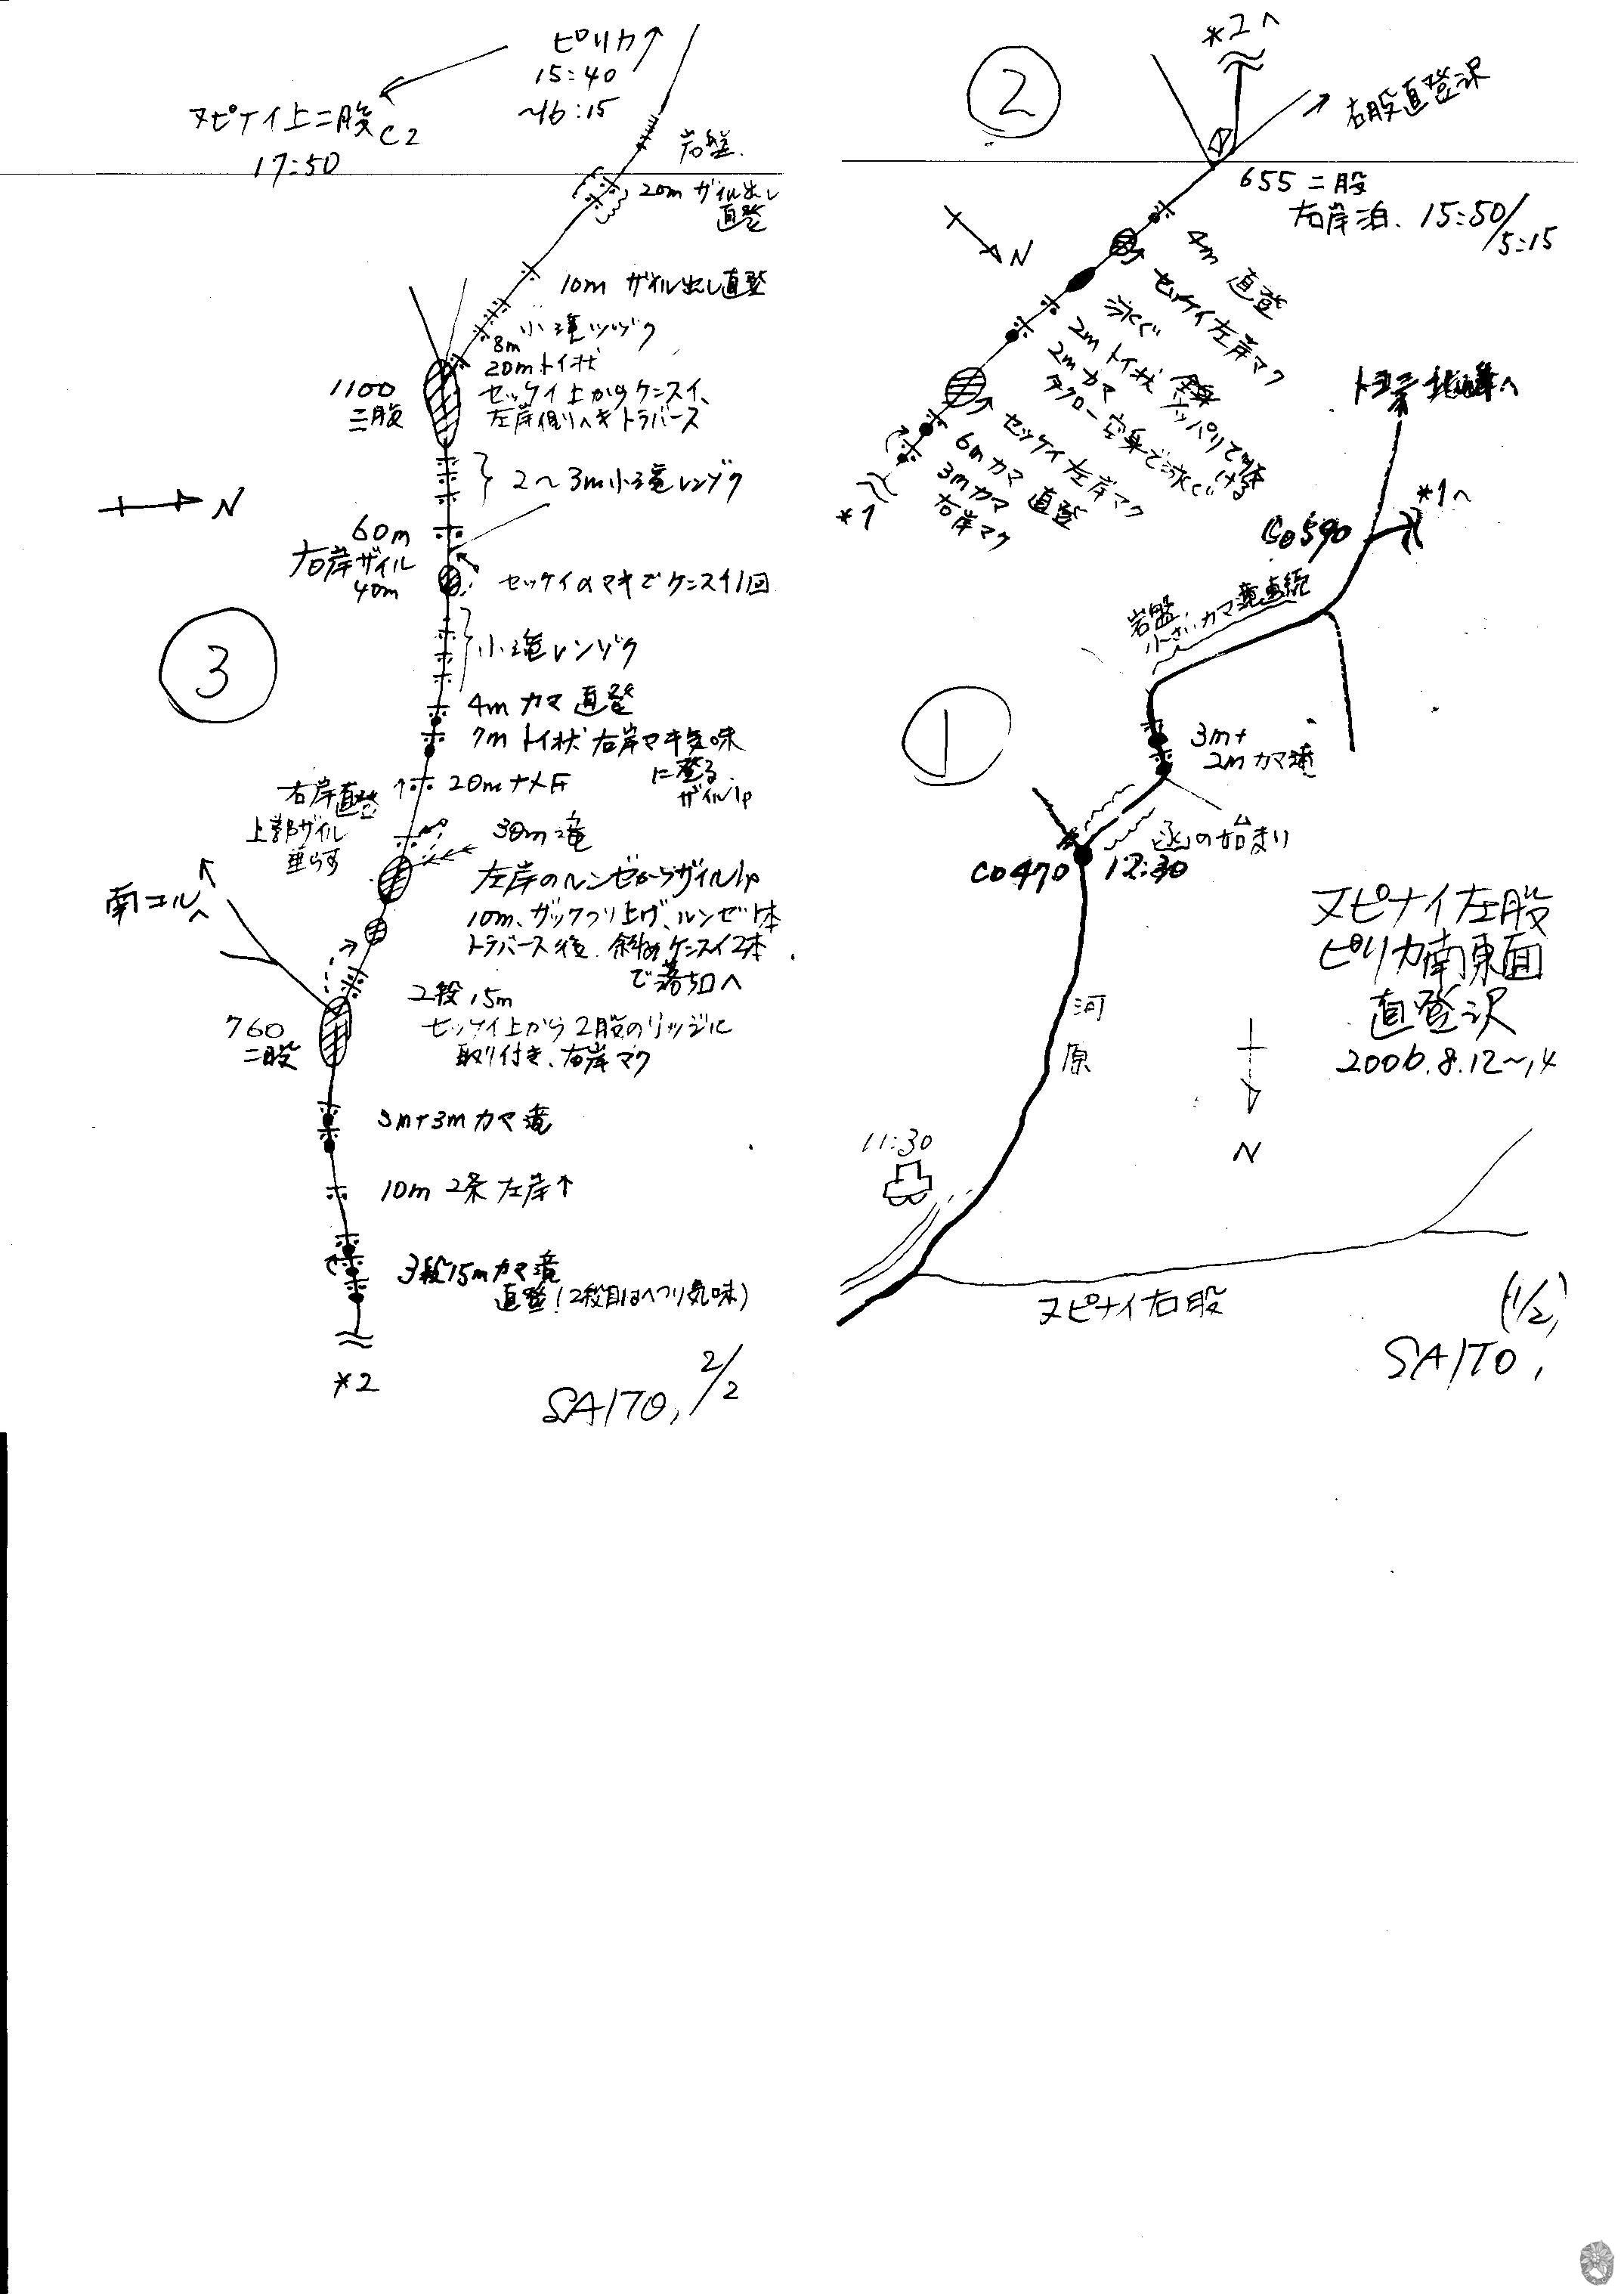 ピリカ
15:40
~16:15
ヌピナイ上二股 C2
17:50
岩盤
20m ザイル出し
直登
10m ザイル出し直登
小滝ツヅク
8m
20mトイ状
セッケイ上からケンスイ、
左岸側ヘキトラバース
1100
二股
2〜3m小滝レンゾク
N
60m
右岸ザイル
40m
セッケイのマキでケンスイ1回
③
小滝レンゾク
4m カマ 直登
7m トイ状 右岸マキ気味
に登る
ザイル1p
20mナメ
右岸直登
上部ザイル
垂らす
30m滝
左岸のルンゼからザイル1p
10m、ザックつり上げ、ルンゼ1本
トラバース後、斜めケンスイ2本
で落ち口へ
南コルへ
2段15m
セッケイ上から2股のリッジに
取り付き、右岸マク
760
二股
3m+3mカマ滝
10m 2条 左岸↑
3段15mカマ滝
直登(2段目はへつり気味)
*2
SAITO, 2/2
②
*2へ
右股直登沢
655二股
右岸泊. 15:50/5:15
N
4m 直登
セッケイ左岸マク
泳ぐ
2mトイ状 ツッパリで
2mカマ 空身で泳ぐ
セッケイ左岸マク
6mカマ 直登
3mカマ
右岸マク
*1
北峰へ
*1へ
Co590
岩盤
小さいカマ滝連続
①
3m+
2mカマ滝
函の始まり
Co470 12:30
ヌピナイ左股
ピリカ南東面
直登沢
2006.8.12~14
河
原
N
11:30
ヌピナイ右股
(1/2)
SAITO,